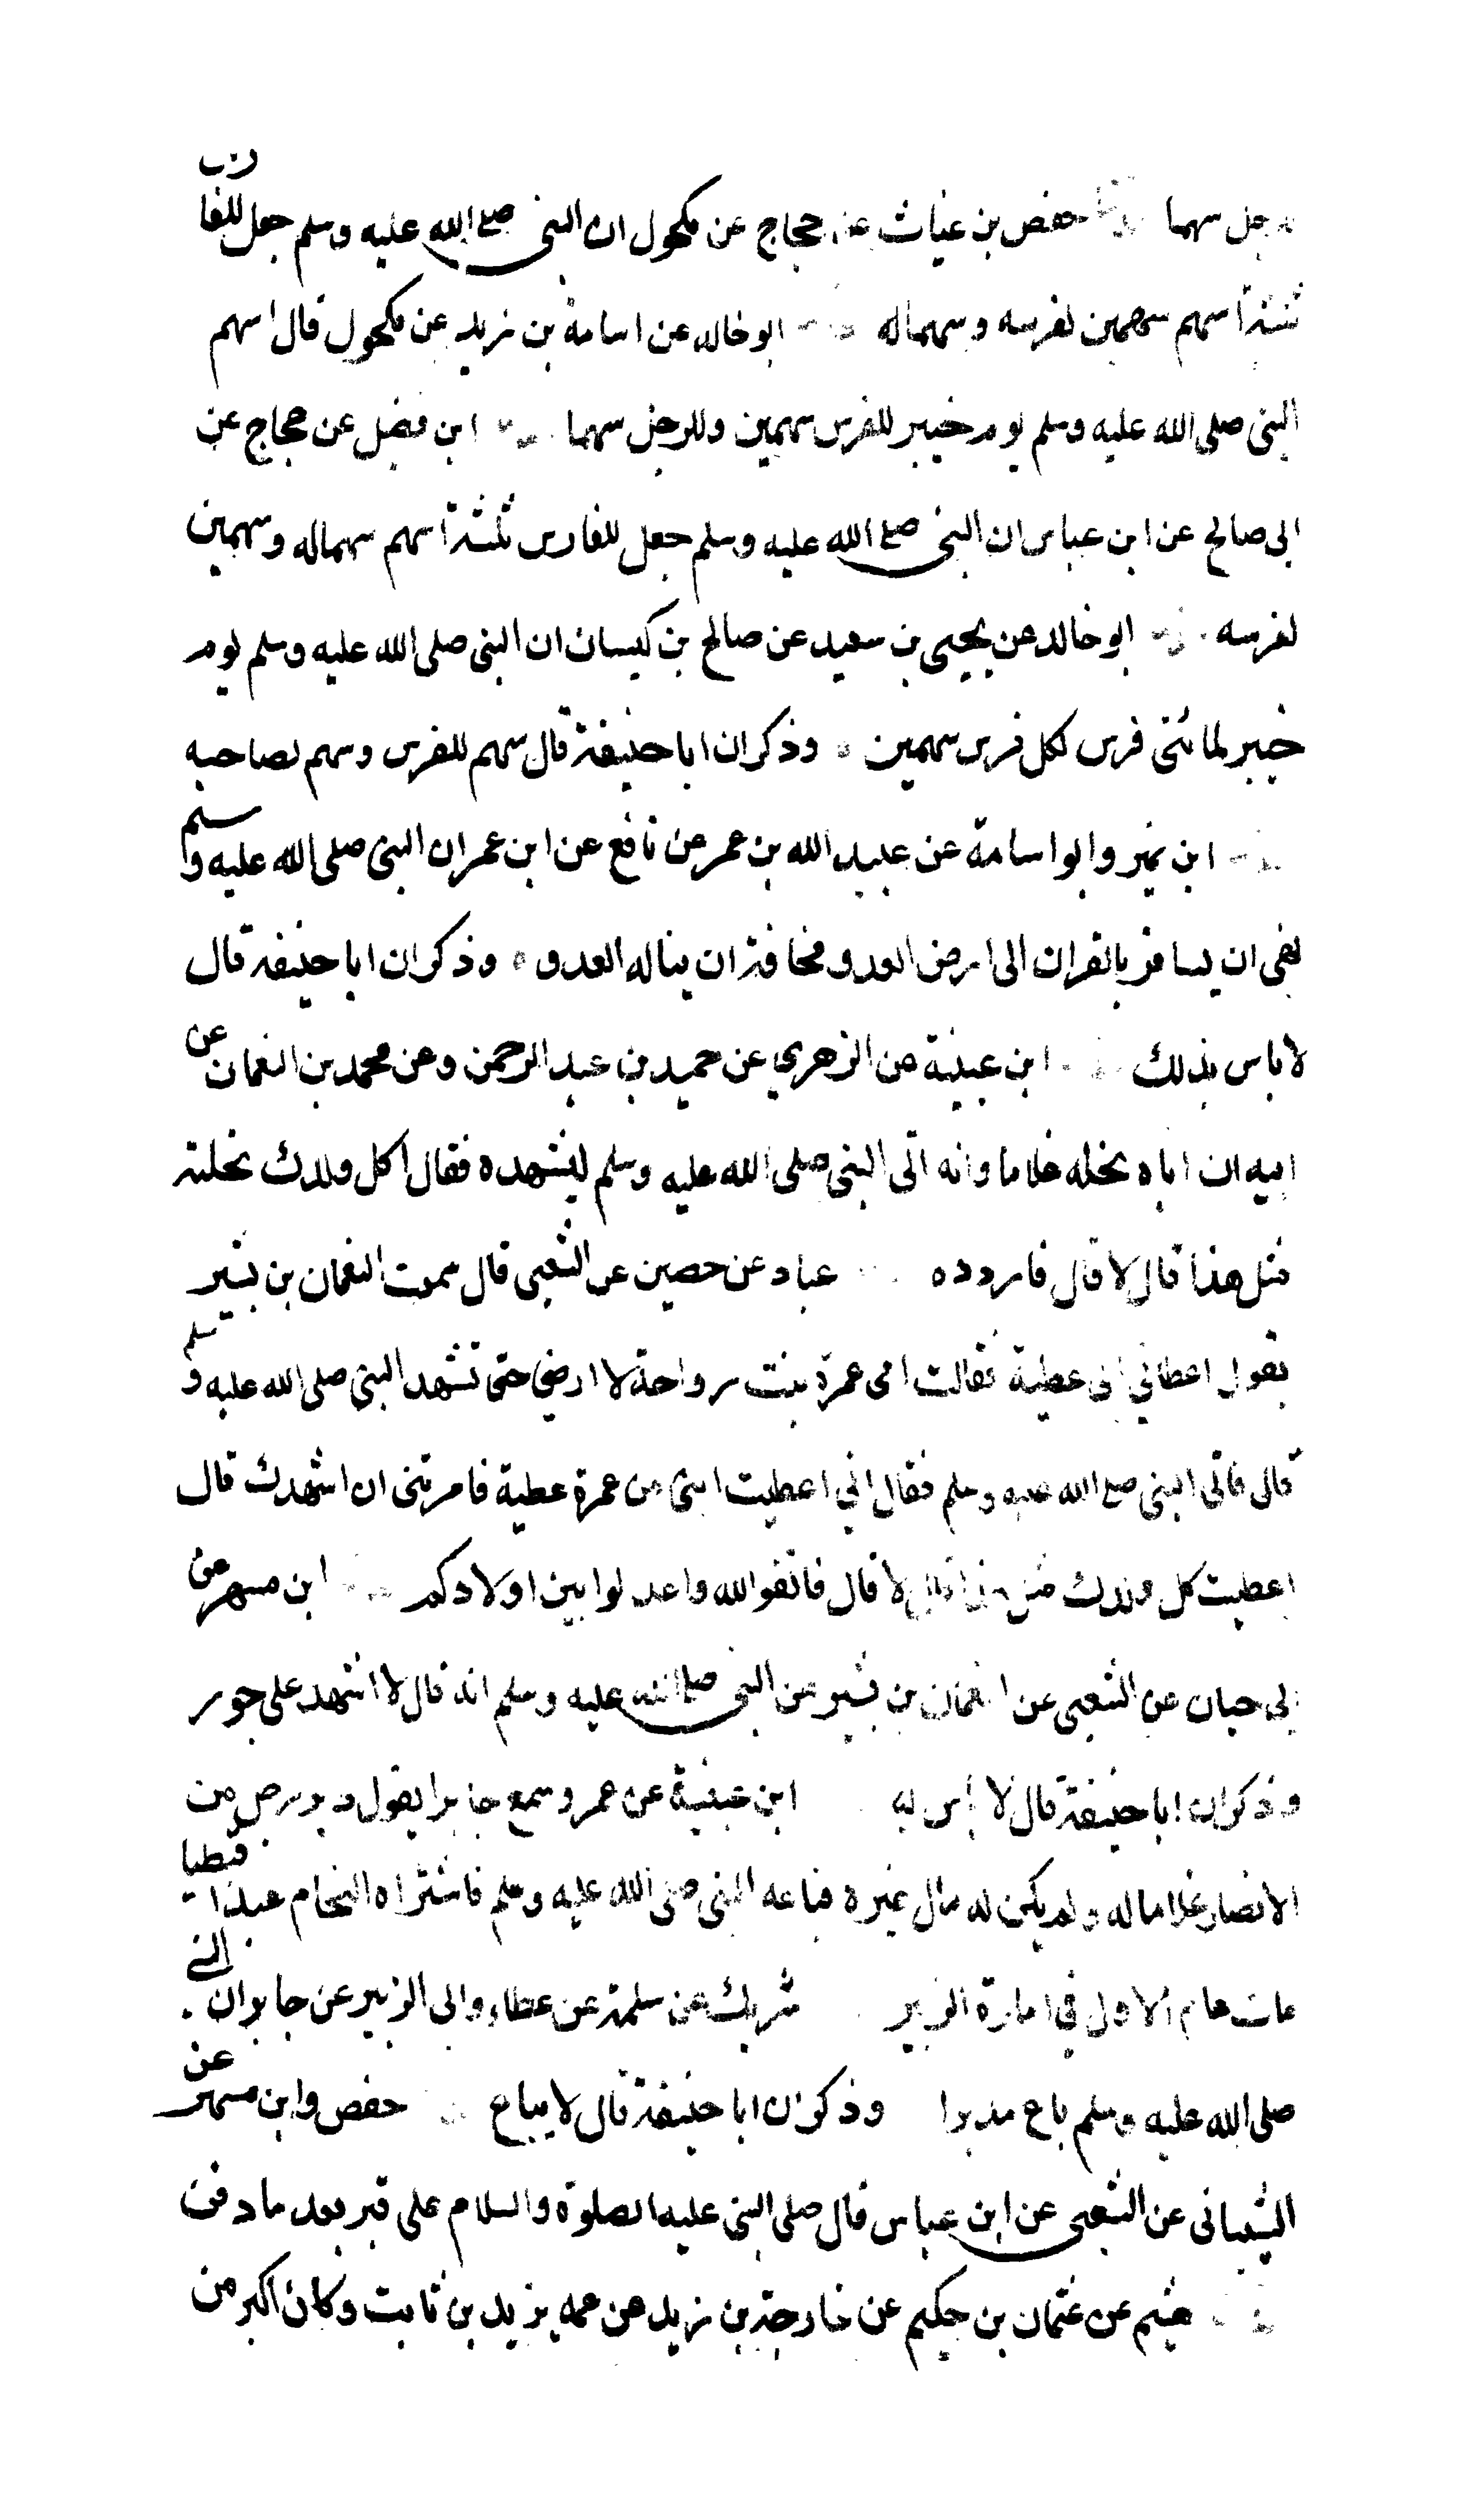 للرجل سهما حدثنا حفص بن غياث عن حجاج عن مكحول ان النبى صلى الله عليه وسلم جعل للفارس
ثلثة اسهم سهمين لفرسه وسهما له ابو خالد عن اسامة بن زيد عن مكحول قال اسهم
النبى صلى الله عليه وسلم يوم خيبر للفرس سهمين وللرجل سهما ابن فضيل عن حجاج عن
ابى صالح عن ابن عباس ان النبى صلى الله عليه وسلم جعل للفارس ثلثة اسهم سهما له وسهمين
لفرسه ابو خالد عن يحيى بن سعيد عن صالح بن كيسان ان النبى صلى الله عليه وسلم يوم
خيبر لمائتى فرس لكل فرس سهمين ه وذكر ان ابا حنيفة قال سهم للفرس وسهم لصاحبه
ابن نمير وابو اسامة عن عبيد الله بن عمر عن نافع عن ابن عمر ان النبى صلى الله عليه وسلم
نهى ان يسافر بالقران الى ارض العدو مخافة ان يناله العدو ه وذكر ان ابا حنيفة قال
لا باس بذلك ابن عيينة عن الزهري عن حميد بن عبد الرحمن وعن محمد بن النعمان عن
ابيه ان اباه نحله غلاما وانه اتى النبى صلى الله عليه وسلم ليشهده فقال اكل ولدك نحلته
مثل هذا قال لا قال فاردده عباد عن حصين عن الشعبى قال سمعت النعمان بن بشير
يقول اعطاني ابى عطية فقالت امى عمرة بنت رواحة لا ارضى حتى تشهد النبى صلى الله عليه وسلم
قال فاتى النبى صلى الله عليه وسلم فقال انى اعطيت ابنى من عمرة عطية فامرتنى ان اشهدك قال
اعطيت كل ولدك مثل هذا قال لا قال فاتقوا الله واعدلوا بين اولادكم ابن مسهر عن
ابى حيان عن الشعبى عن النعمان بن بشير عن النبى صلى الله عليه وسلم انه قال لا اشهد على جور
وذكر ان ابا حنيفة قال لا بأس به ابن عيينة عن عمرو سمع جابرا يقول دبر رجل من
الانصار غلاما له ولم يكن له مال غيره فباعه النبى صلى الله عليه وسلم فاشتراه النحام عبدا قبطيا
مات عام الاول في امارة الزبير شريك عن سلمة عن عطاء وابى الزبير عن جابر ان النبى
صلى الله عليه وسلم باع مدبرا وذكر ان ابا حنيفة قال لا يباع حفص وابن مسهر عن
الشيبانى عن الشعبى عن ابن عباس قال صلى النبى عليه الصلوة والسلام على قبر بعد ما دفن
هشيم عن عثمان بن حكيم عن خارجة بن زيد عن عمه يزيد بن ثابت وكان اكبر من